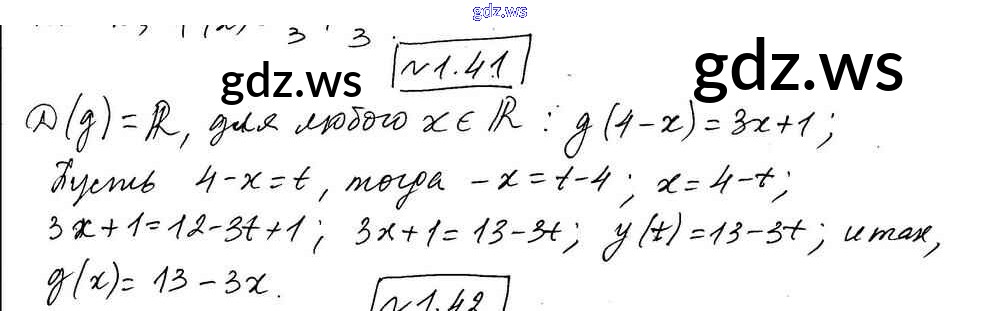 gdz.ws
3 3
№1.41
gdz.ws gdz.ws
D(g) = ℝ, для любого x ∈ ℝ : g(4-x) = 3x+1;
Пусть 4-x=t, тогда -x=t-4; x=4-t;
3x+1=12-3t+1; 3x+1=13-3t; y(t)=13-3t; итак,
g(x)= 13-3x.
№1.42